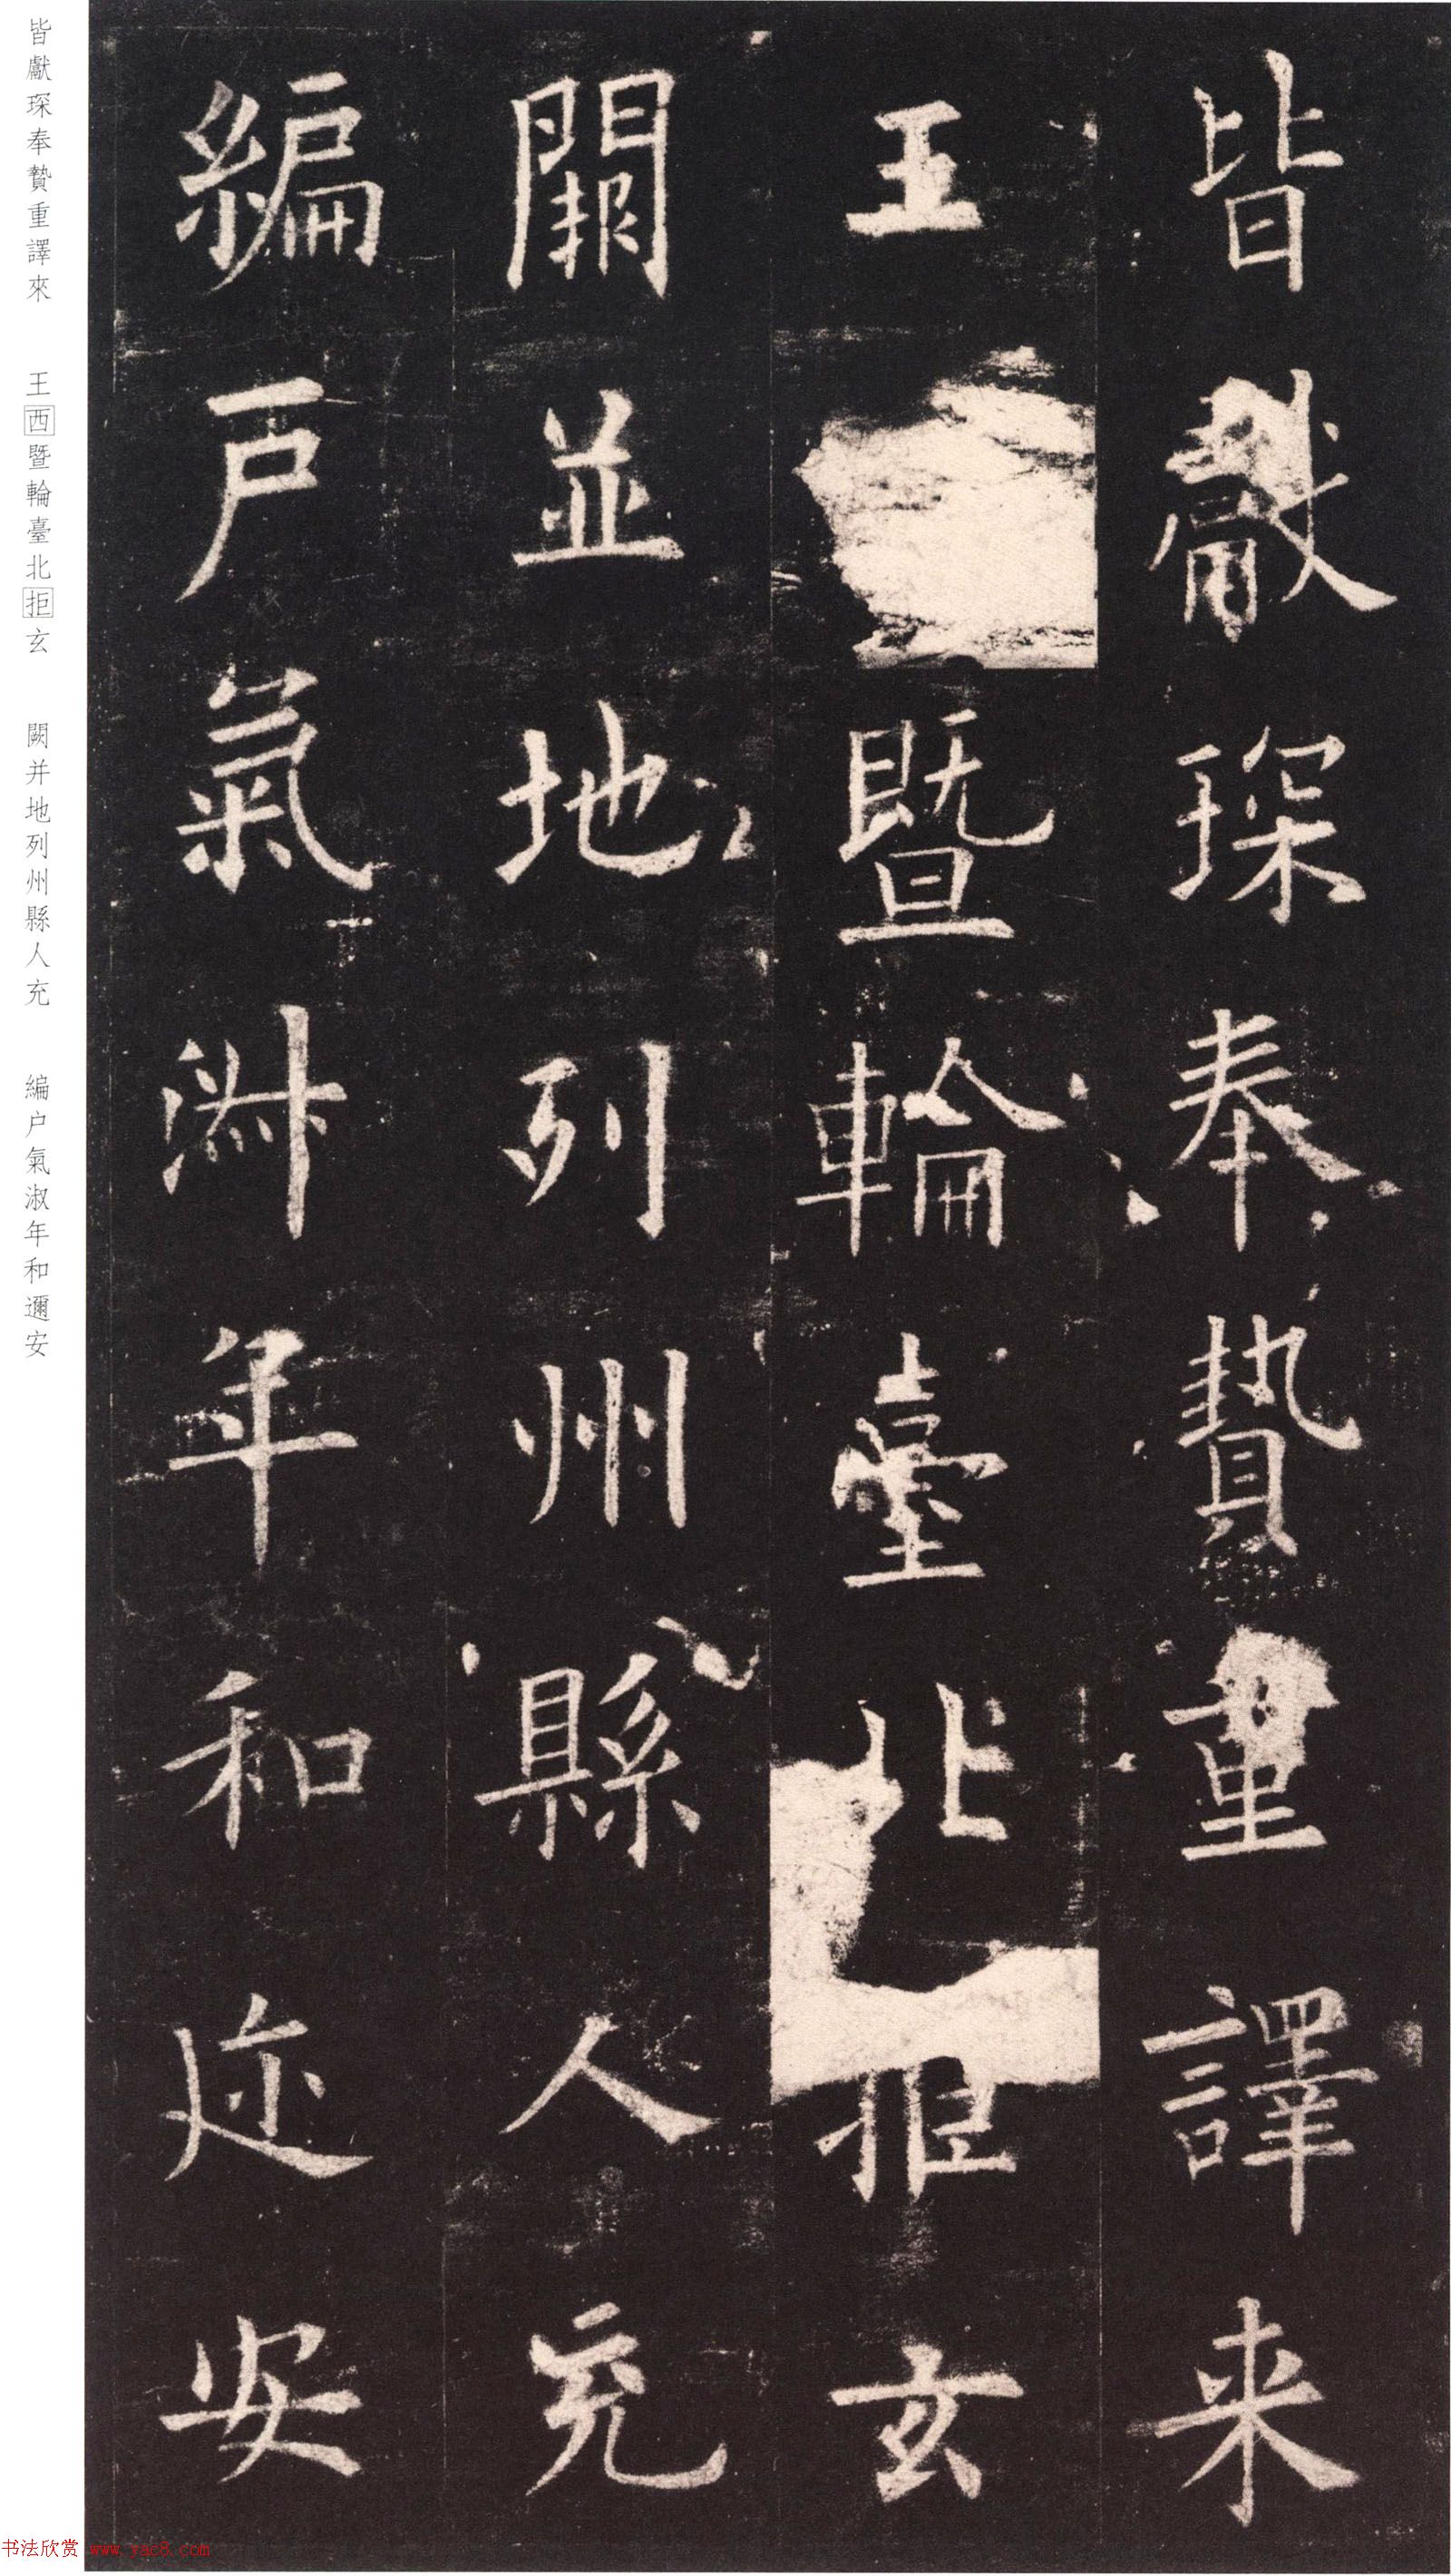 皆獻琛奉贄重譯来
王暨輪臺北拒玄
闕並地列州縣人充
編戶氣淑年和迩安
皆獻琛奉贄重譯來
王西暨輪臺北拒玄
闕并地列州縣人充
編户氣淑年和邇安
书法欣赏 www.yac8.com